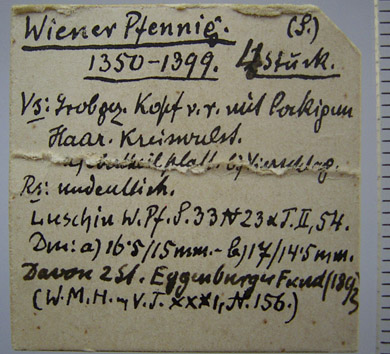 Wiener Pfennig. (S.)
1350-1399. 4 Stück.
Vs: Grobgez. Kopf v. r. mit lockigem
Haar. Kreiswulst.
b) Vierschlag.
Rs: undeutlich.
Luschin W. Pf. S. 33 N 23 & T. II, 54.
Dm: a) 16·5/15 mm. - b) 17/14·5 mm.
Davon 2 St. Eggenburger Fund
(W. M. H. V. T. XXXI, N. 156.)